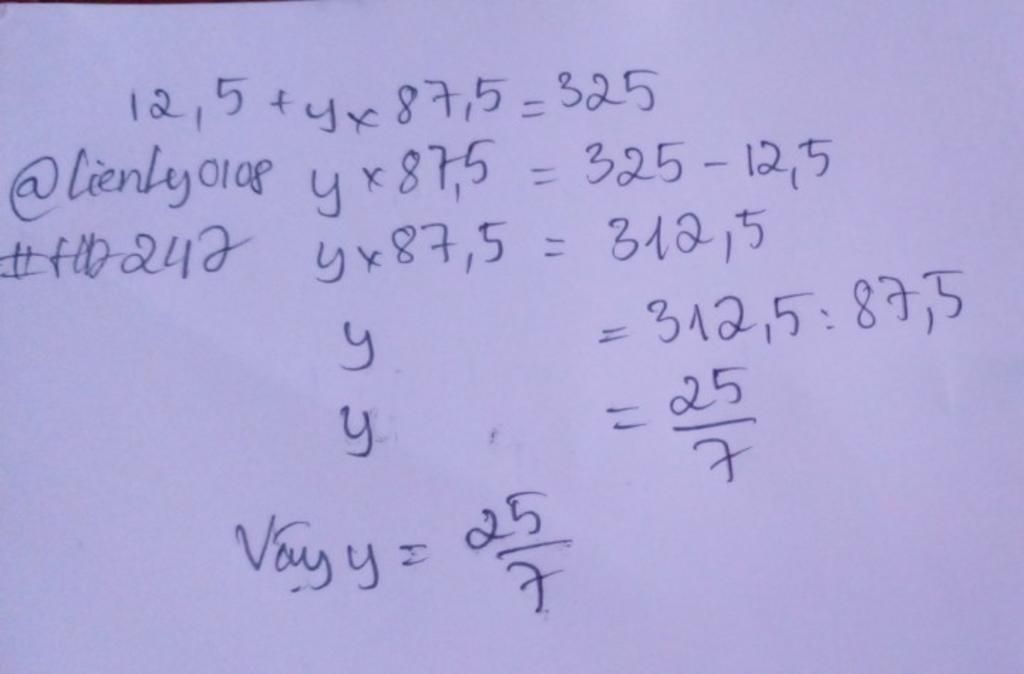 12,5 + y x 87,5 = 325
@lienly0108 y x 87,5 = 325 - 12,5
y x 87,5 = 312,5
y = 312,5 : 87,5
y = 25/7
Vậy y = 25/7